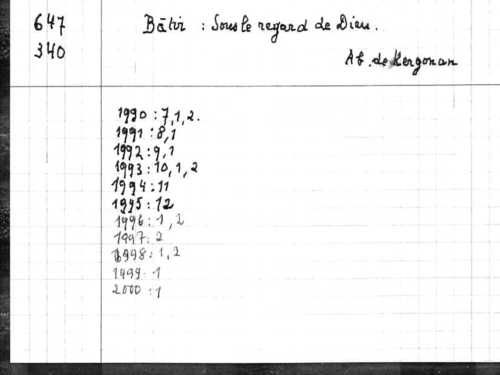 647
340
Bâtir : Sous le regard de Dieu.
Ab. de Kergonan
1990 : 7, 1, 2.
1991 : 8, 1
1992 : 9, 1
1993 : 10, 1, 2
1994 : 11
1995 : 12
1996 : 1, 2
1997 : 2
1998 : 1, 2
1999 : 1
2000 : 1